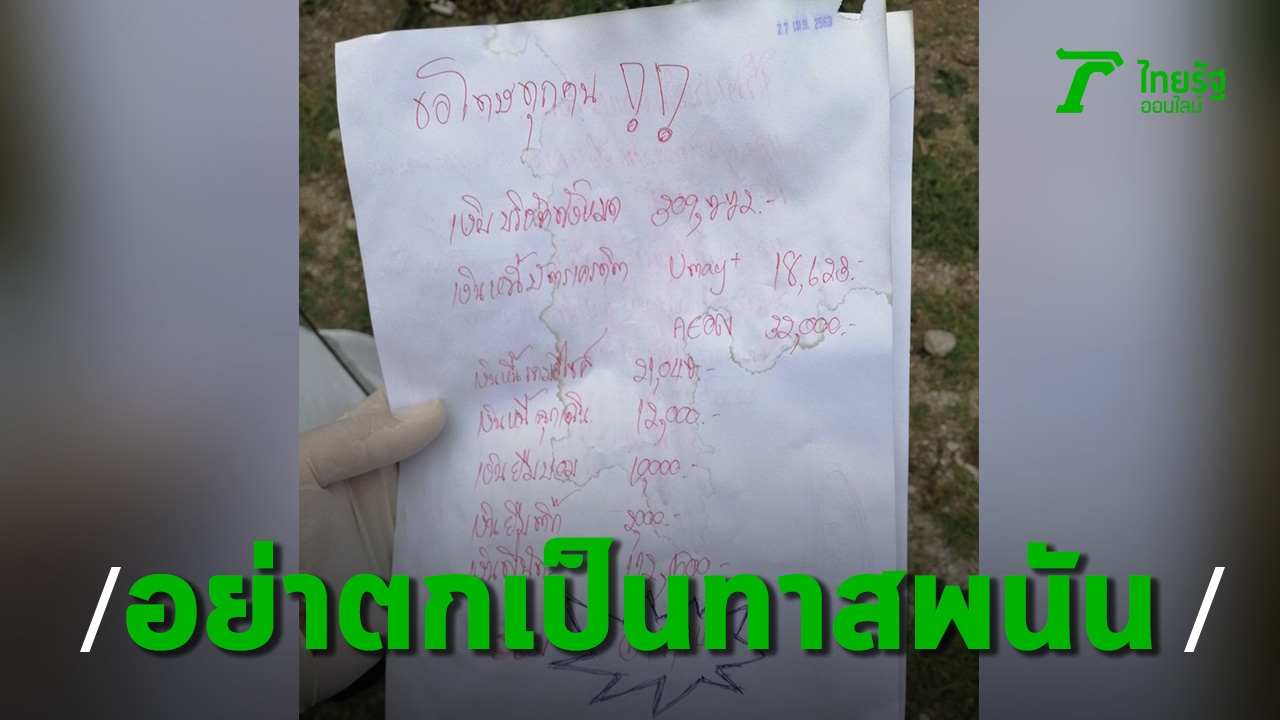 27 เม.ย. 2563
ไทยรัฐ
ออนไลน์
ขอโทษทุกคน !!
เงินบริษัททั้งหมด
เงินหนี้บัตรเครดิต Umay+ 18,628.-
AEON 32,000.-
เงินหนี้ 21,048.-
เงินหนี้ฉุกเฉิน 12,000.-
เงินยืมบอม 10,000.-
เงินยืม
/อย่าตกเป็นทาสพนัน /